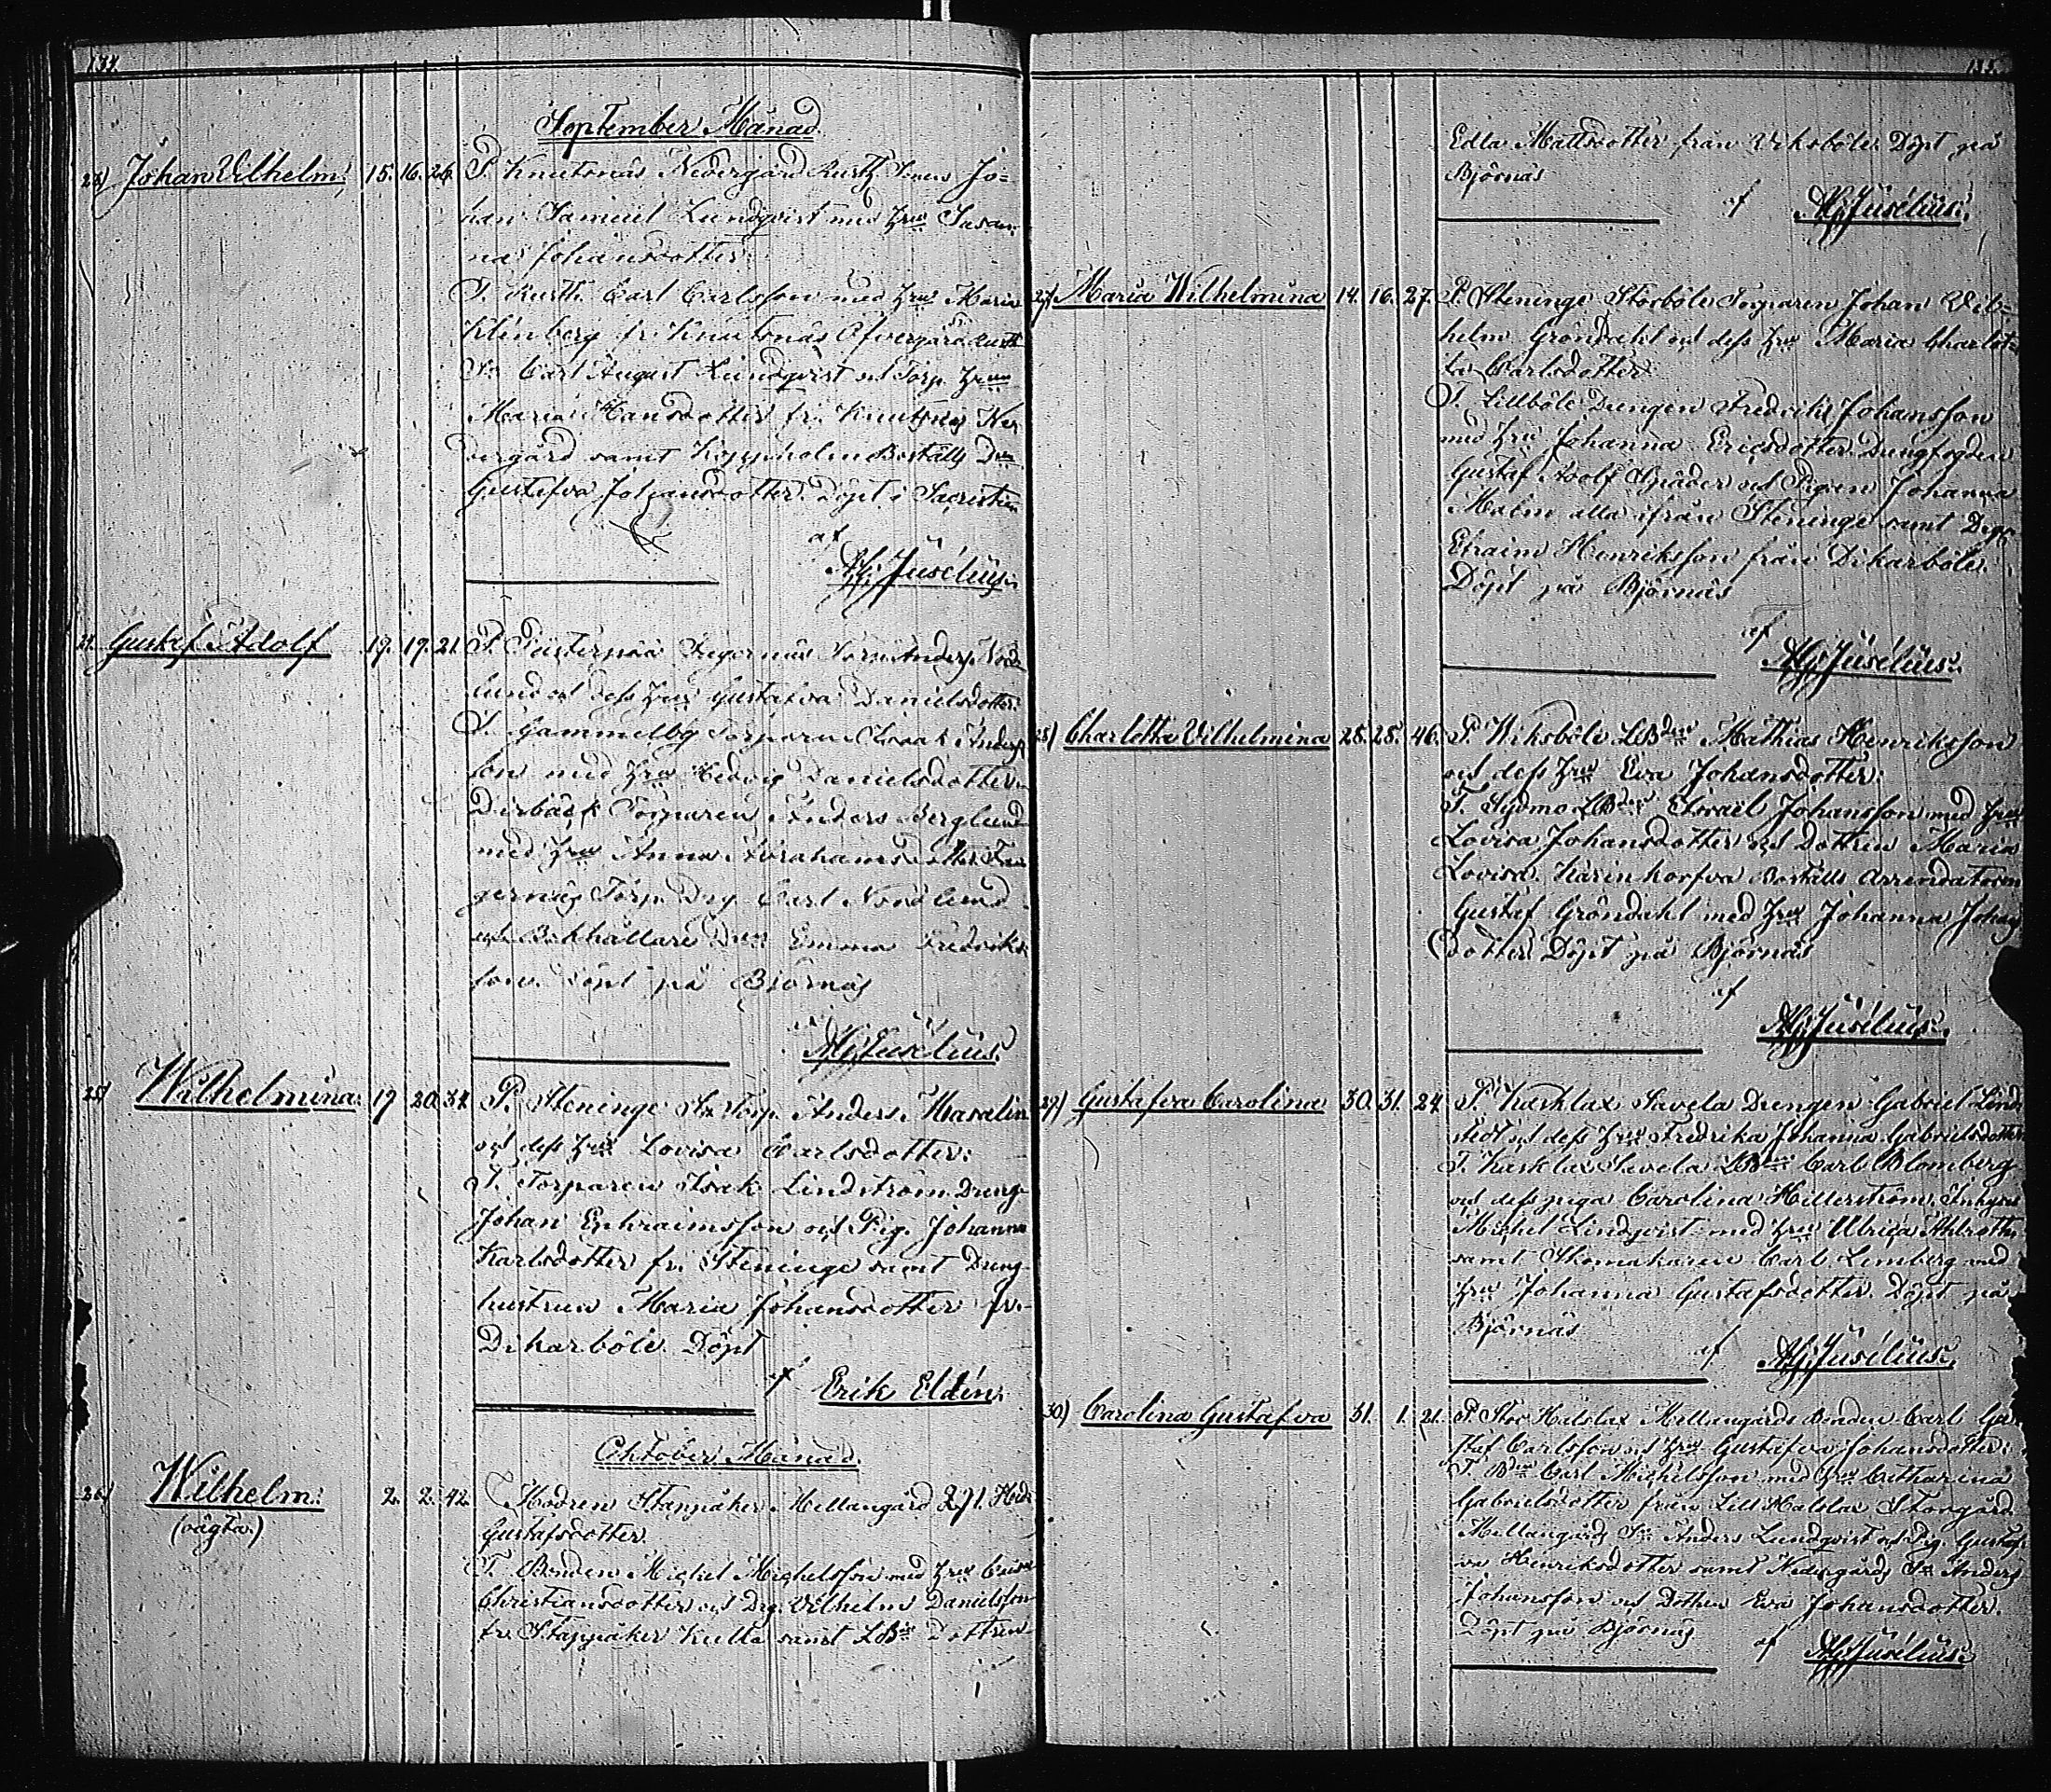 134.
September Månad.
23) Johan Vilhelm, 15. 16. 26. P. Knutsnäs Nedergård Rusth. Sonen Jo-
han Samuel Lundqvist med hru Susan-
na Johansdotter.
T. Rusth. Carl Carlsson med hru Maria
Klinberg fr. Knutsnäs Öfvergård Rusth.
Sn Carl August Lundqvist och Torp. hrun
Maria Hansdotter fr. Knutsnäs Ne-
dergård samt Boställs Dr
Gustafva Johansdotter. Döpt i Sacristian
af
Juselius.
24. Gustaf Adolf 19. 19. 21. P. Anders Nord-
lund och dess hru Gustafva Danielsdotter.
T. Gammelby Torparen Isaak Anders-
son med hru Hedvig Danielsdotter
Torparen Anders Berglund
med hru Anna Abrahamsdotter
Torp. Drg Carl Nordlund
och Bokhållare Emma Fredriks-
son. Döpt på Björnäs
af
Juselius.
25) Wilhelmina. 19 20. 34. P. Steninge Torp. Anders
och dess hru Lovisa Carlsdotter.
T. Torparen Isak Lindström Dreng.
Johan Ephraimsson och Pig. Johanna
Karlsdotter fr. Steninge samt Dreng-
hustrun Maria Johansdotter fr.
Dikarböle. Döpt
af Erik Eldén.
Oktober Månad.
26) Wilhelm. 2. 2. 42. Modren Mellangård
(oägta.) Gustafsdotter.
T. Bonden Michel Michelsson med hru
Christiansdotter och Drg. Vilhelm Danielsson
fr. samt LBds Dottren
135.
Edla Mattsdotter från Viksböle. Döpt på
Björnäs
af Juselius.
27) Maria Wilhelmina 14. 16. 27. P. Steninge Storböle Torparen Johan Vil-
helm Gröndahl och dess hru Maria Charlot-
ta Carlsdotter.
T. Lillböle Drengen Fredrik Johansson
med hru Johanna Ericsdotter Drengfogden
Gustaf Adolf och Pigan Johanna
Malm alla ifrån Steninge samt Drg.
Efraim Henriksson från Dikarböle.
Döpt på Björnäs
af
Juselius.
28) Charlotta Vilhelmina 25. 25. 46. P. Wiksböle LBden Mathias Henriksson
och dess hru Eva Johansdotter.
T. Sydmo LBden Israel Johansson med hru
Lovisa Johansdotter och Dottren Maria
Lovisa. Karinkorfva Boställs Arrendatorn
Gustaf Gröndahl med hru Johanna Johans-
dotter Döpt på Björnäs
af
Juselius.
29) Gustafva Carolina 30. 31. 24. P. Karklax Savela Drengen Gabriel Lind-
stedt och dess hru Fredrika Johanna Gabrielsdotter.
T. Karklax Savela LBden Carl Blomberg
och dess piga Carolina Hellerström, Inhyses
Michel Lindqvist med hru Ulrica
samt Skomakaren Carl Lemberg med
hru Johanna Gustafsdotter. Döpt på
Björnäs
af Juselius.
30) Carolina Gustafva 31. 1. 21. P. Stor Halslax Mellangårds Bonden Carl Gu-
staf Carlsson och hru Gustafva Johansdotter.
T. Bden Carl Michelsson med hru Catharina
Gabrielsdotter från Lill Halslax Storgård.
Mellangårds Sn Anders Lundqvist och Pig. Gustaf-
va Henriksdotter samt Nedergårds Sn Anders
Johansson och Dottren Eva Johansdotter.
Döpt på Björnäs
af Juselius.